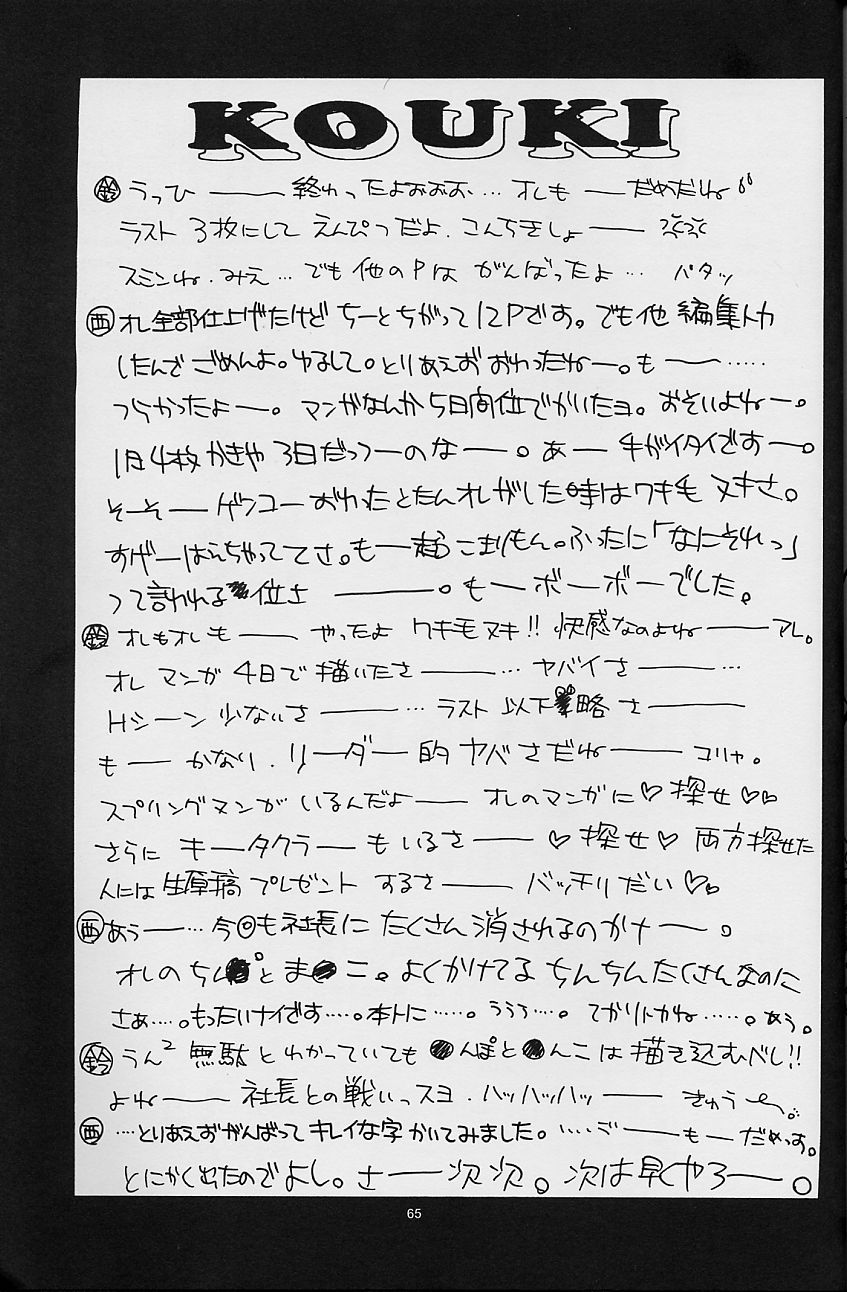 KOUKI
鈴 うっひ――終わったよおおお…オレも―だめだね
ラスト 3枚にして えんぴつだよ.こんちきしょ――
スミンね.みえ…でも他のPは がんばったよ… パタッ
西 オレ全部仕上げたけど ちーとちがって12Pです。でも他 編集トカ
したんで ごめんよ。ゆるして。とりあえずおわったねー。も――……
つらかったよー。マンガなんか5日間位でかいたヨ。おそいよねー。
1月4枚かきや3日だっつーのなー。あー 手がイタイですー。
そーそーゲンコーおわったとたんオレがした時はワキ毛 ヌキさ。
すげーはえちゃっててさ。もー超こまりもん。ふったに「なにそれっ」
って言われる位さ――。もーボーボーでした。
鈴 オレもオレも――やったよ ワキモヌキ!! 快感なのよね――アレ。
オレ マンガ 4日で描いたさ――…ヤバイさ――…
Hシーン少ないさ――…ラスト以下略さ――
も―かなり.リーダー的ヤバさだね――コリャ。
スプリングマンが いるんだよ――オレのマンガに♡探せ♡♡
さらに キータクラーもいるさ――♡探せ♡ 両方探せた
人には生原稿プレゼント するさ――バッチリだい♡♡
西 あぅー…今◎も社長に たくさん消されるのかナー。
オレのちん●とま●こ。よくかけてるちんちんたくさんなのに
さぁ…。もったいナイです…。本トに……。ううぅ…。てかりトカね……。あぅ。
鈴 うん² 無駄とわかっていても●んぽと●んこは描き込むべし!!
よね――社長との戦いっスヨ.ハッハッハッ――きゅう〜。
西 …とりあえずがんばってキレイな字かいてみました。…もーだめっす。
とにかく出たのでよし。さ――次次。次は早くヤろー。
65